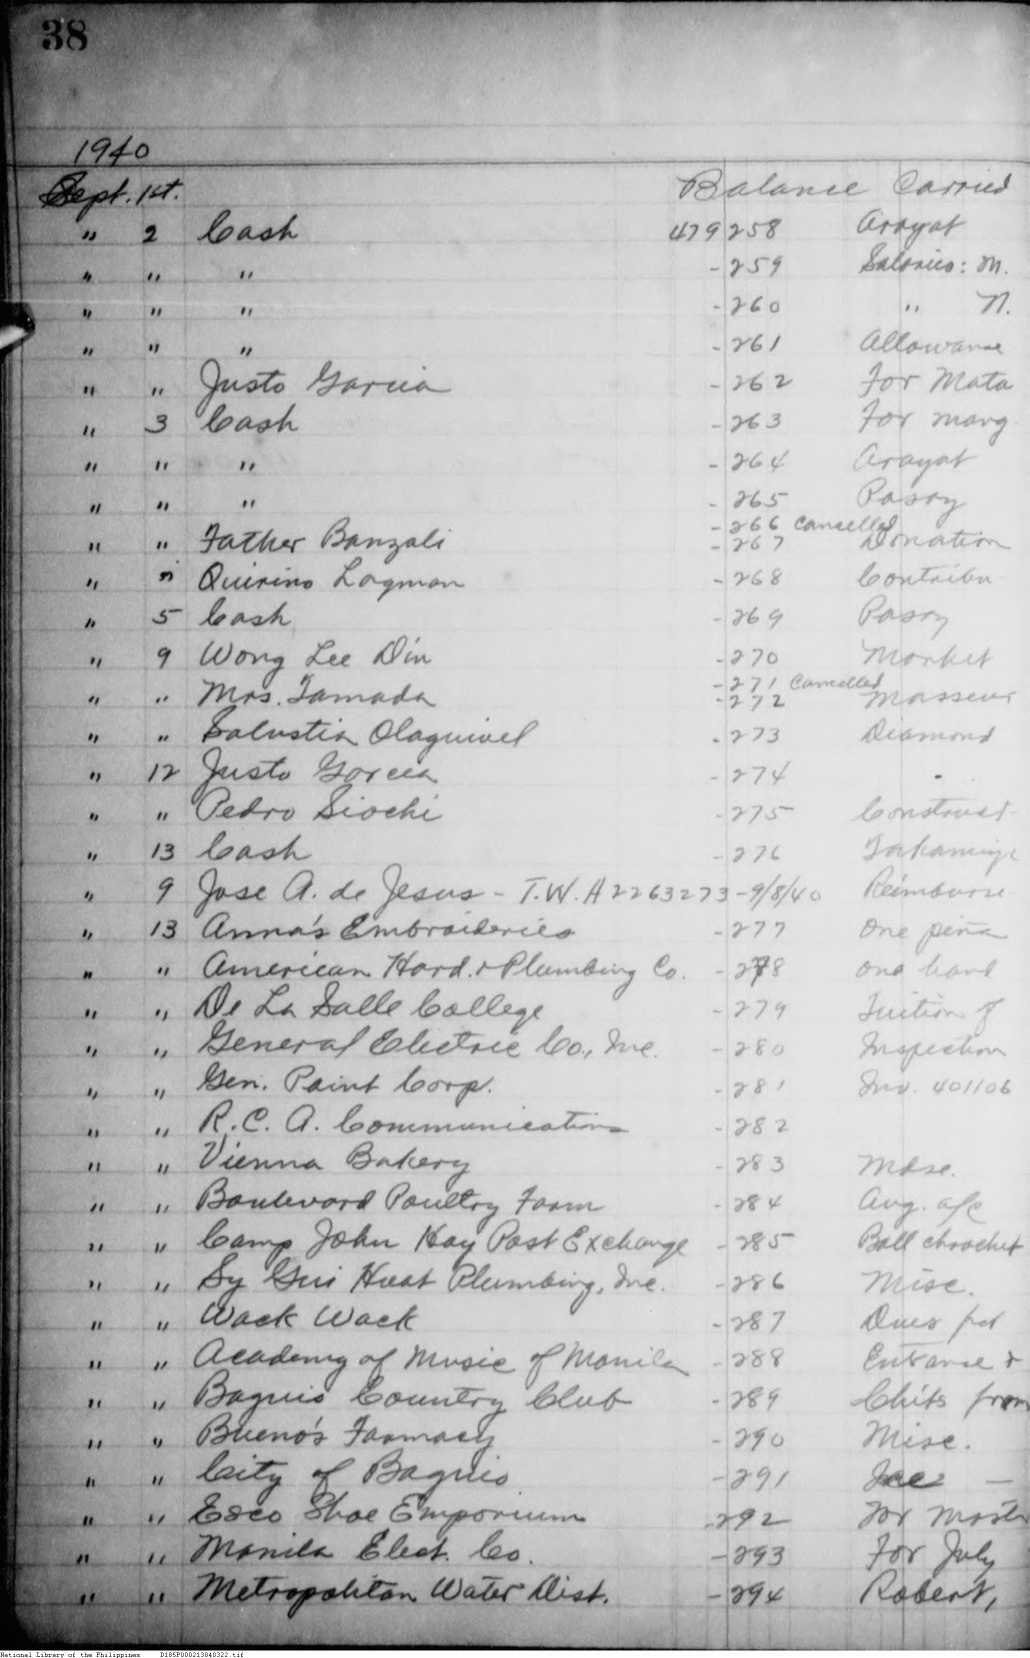 38
1940
Sept. 1st. Balance Carried
" 2 Cash 479258 Arayat
" " " -259 Salaries: M.
" " " -260 " N.
" " " -261 Allowance
" " Justo Garcia -262 For Mata
" 3 Cash -263 For mang
" " " -264 Arayat
" " " -265 Pasay
-266 Cancelled
" " Father Banzali -267 Donation
" " Quirino Lagman -268 Contribu
" 5 Cash -269 Pasay
" 9 Wong Lee Din -270 Market
-271 Cancelled
" " Mrs. Tamada -272 Masseur
" " Salustia Olaguivel -273 Diamond
" 12 Justo Garcia -274 "
" " Pedro Siochi -275 Construct
" 13 Cash -276
" 9 Jose A. de Jesus - T.W.A 2263273-9/8/40 Reimburse
" 13 Anna's Embroideries -277 One piña
" " American Hard. & Plumbing Co. -278 one hand
" " De La Salle College -279 Tuition of
" " General Electric Co., Inc. -280 Inspection
" " Gen. Paint Corp. -281 Inv. 401106
" " R.C.A. Communications -282
" " Vienna Bakery -283 Mdse.
" " Boulevard Poultry Farm -284 Aug. a/c
" " Camp John Hay Post Exchange -285 Ball chrochet
" " Sy Gui Huat Plumbing, Inc. -286 Misc.
" " Wack Wack -287 Dues for
" " Academy of Music of Manila -288 Entrance &
" " Baguio Country Club -289 Chits from
" " Bueno's Farmacy -290 Misc.
" " City of Baguio -291 Ice —
" " Esco Shoe Emporium -292 For Mast
" " Manila Elect. Co. -293 For July
" " Metropolitan Water Dist. -294 Robert,
National Library of the Philippines D185P000213840322.tif